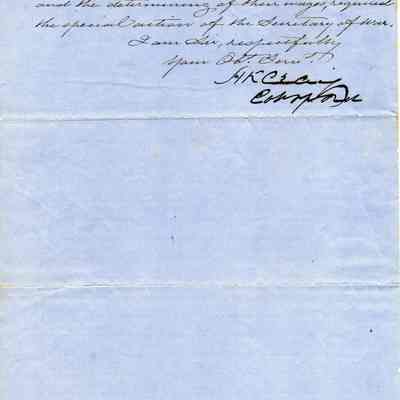 and the determining of their wages, required
the special action of the Secretary of War.
I am Sir, respectfully
Your Ob. Serv.t
H K Craig
Col. of Ord